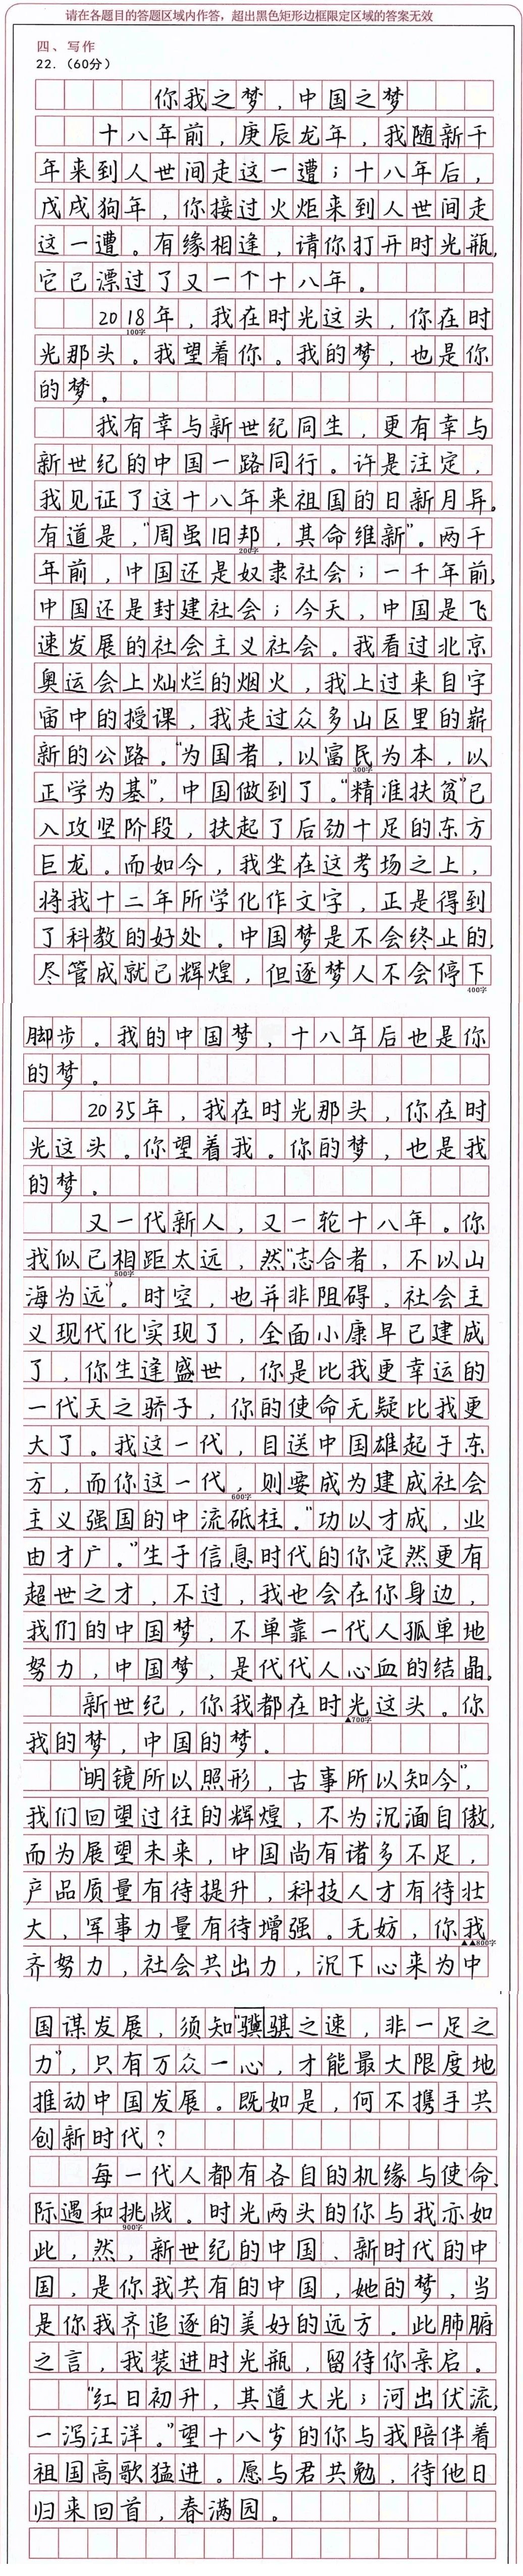 请在各题目的答题区域内作答，超出黑色矩形边框限定区域的答案无效
四、写作
22.（60分）
你我之梦，中国之梦
十八年前，庚辰龙年，我随新千
年来到人世间走这一遭；十八年后，
戊戌狗年，你接过火炬来到人世间走
这一遭。有缘相逢，请你打开时光瓶，
它已漂过了又一个十八年。
2018年，我在时光这头，你在时
100字
光那头。我望着你。我的梦，也是你
的梦。
我有幸与新世纪同生，更有幸与
新世纪的中国一路同行。许是注定，
我见证了这十八年来祖国的日新月异。
有道是，“周虽旧邦，其命维新”。两千
200字
年前，中国还是奴隶社会；一千年前，
中国还是封建社会；今天，中国是飞
速发展的社会主义社会。我看过北京
奥运会上灿烂的烟火，我上过来自宇
宙中的授课，我走过众多山区里的崭
新的公路。“为国者，以富民为本，以
300字
正学为基”，中国做到了。“精准扶贫”已
入攻坚阶段，扶起了后劲十足的东方
巨龙。而如今，我坐在这考场之上，
将我十二年所学化作文字，正是得到
了科教的好处。中国梦是不会终止的，
尽管成就已辉煌，但逐梦人不会停下
400字
脚步。我的中国梦，十八年后也是你
的梦。
2035年，我在时光那头，你在时
光这头。你望着我。你的梦，也是我
的梦。
又一代新人，又一轮十八年。你
我似已相距太远，然“志合者，不以山
500字
海为远”。时空，也并非阻碍。社会主
义现代化实现了，全面小康早已建成
了，你生逢盛世，你是比我更幸运的
一代天之骄子，你的使命无疑比我更
大了。我这一代，目送中国雄起于东
方，而你这一代，则要成为建成社会
600字
主义强国的中流砥柱。“功以才成，业
由才广。”生于信息时代的你定然更有
超世之才，不过，我也会在你身边，
我们的中国梦，不单靠一代人孤单地
努力，中国梦，是代代人心血的结晶。
新世纪，你我都在时光这头。你
▲700字
我的梦，中国的梦。
“明镜所以照形，古事所以知今”，
我们回望过往的辉煌，不为沉湎自傲，
而为展望未来，中国尚有诸多不足，
产品质量有待提升，科技人才有待壮
大，军事力量有待增强。无妨，你我
▲▲800字
齐努力，社会共出力，沉下心来为中
国谋发展，须知“骥骐之速，非一足之
力”，只有万众一心，才能最大限度地
推动中国发展。既如是，何不携手共
创新时代？
每一代人都有各自的机缘与使命、
际遇和挑战。时光两头的你与我亦如
900字
此，然，新世纪的中国、新时代的中
国，是你我共有的中国，她的梦，当
是你我齐追逐的美好的远方。此肺腑
之言，我装进时光瓶，留待你亲启。
“红日初升，其道大光；河出伏流，
一泻汪洋。”望十八岁的你与我陪伴着
祖国高歌猛进。愿与君共勉，待他日
归来回首，春满园。